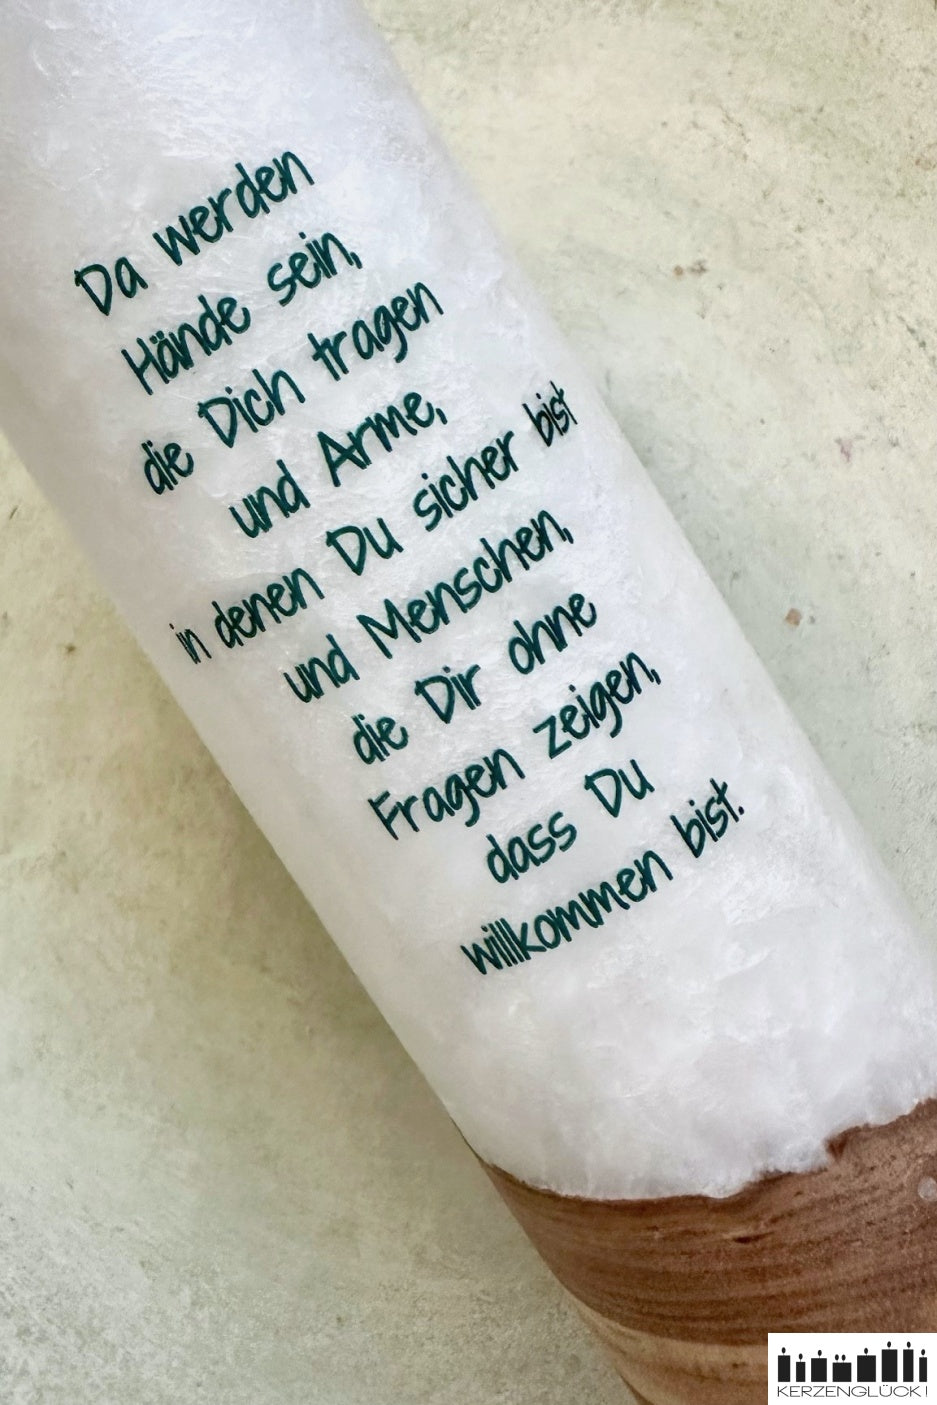 Da werden
Hände sein,
die Dich tragen
und Arme,
in denen Du sicher bist
und Menschen,
die Dir ohne
Fragen zeigen,
dass Du
willkommen bist.
KERZENGLÜCK!